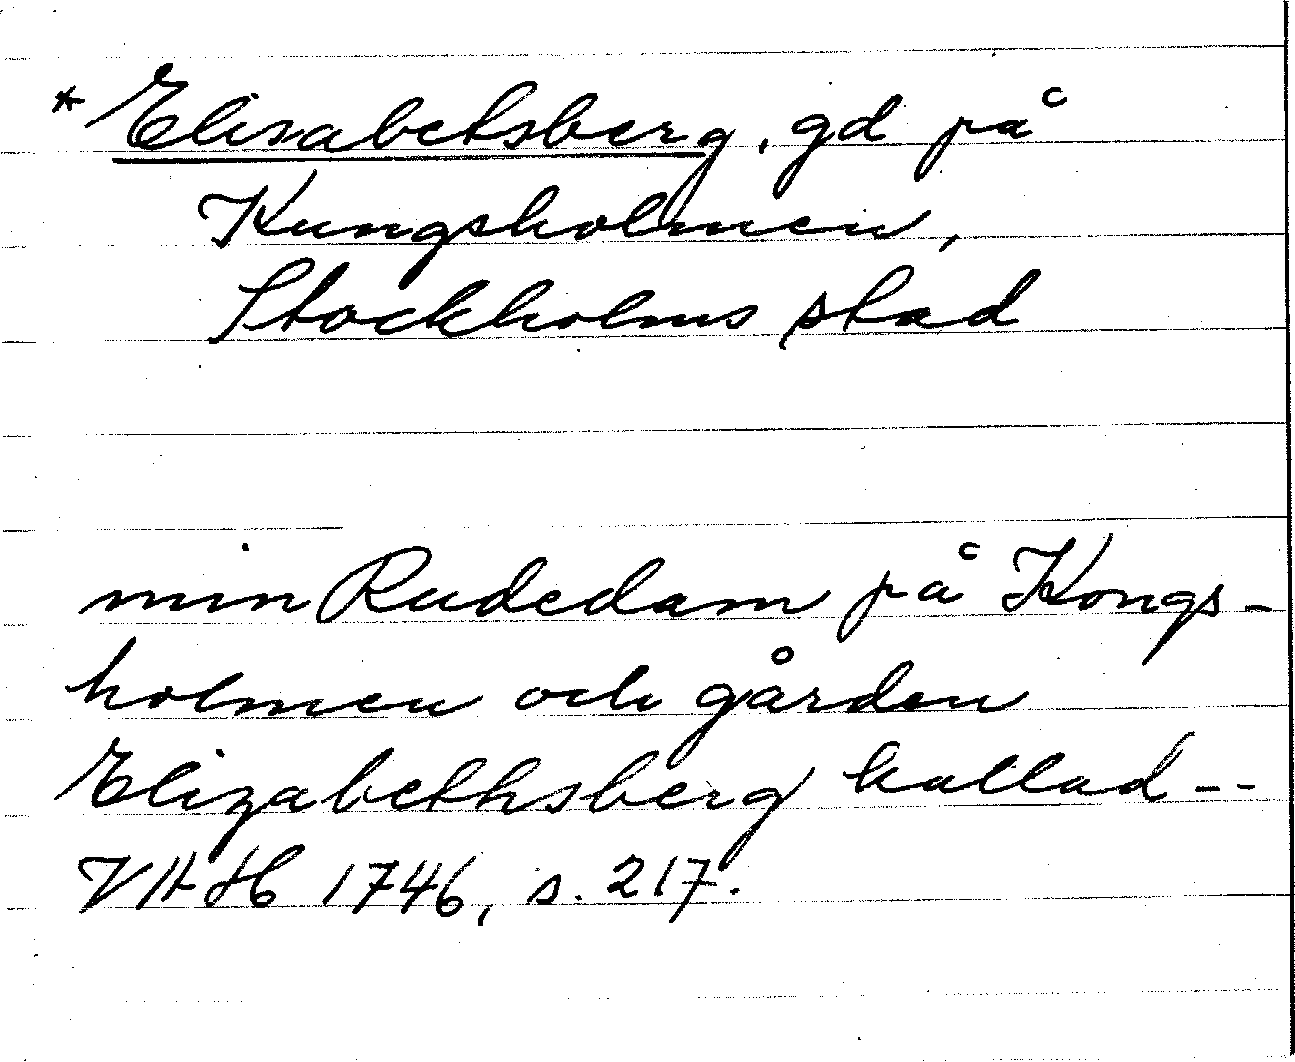 * Elisabetsberg, gd på
Kungsholmen,
Stockholms stad
min Rudedam på Kongs-
holmen och gården
Elizabethsberg kallad --
VAH 1746, s. 217.